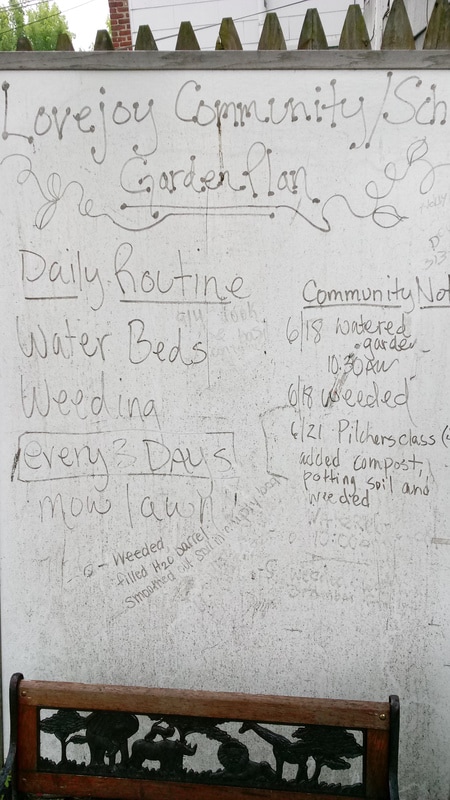 Lovejoy Community/Sch
Garden Plan
Daily Routine
Water Beds
Weeding
every 3 Days
mow lawn
Community Not
6/18 watered
garden
10:30AM
6/18 weeded
6/21 Pilchers class
added compost,
potting soil and
weeded
Weeded
filled H2O barrel
smoothed out soil in empty bed